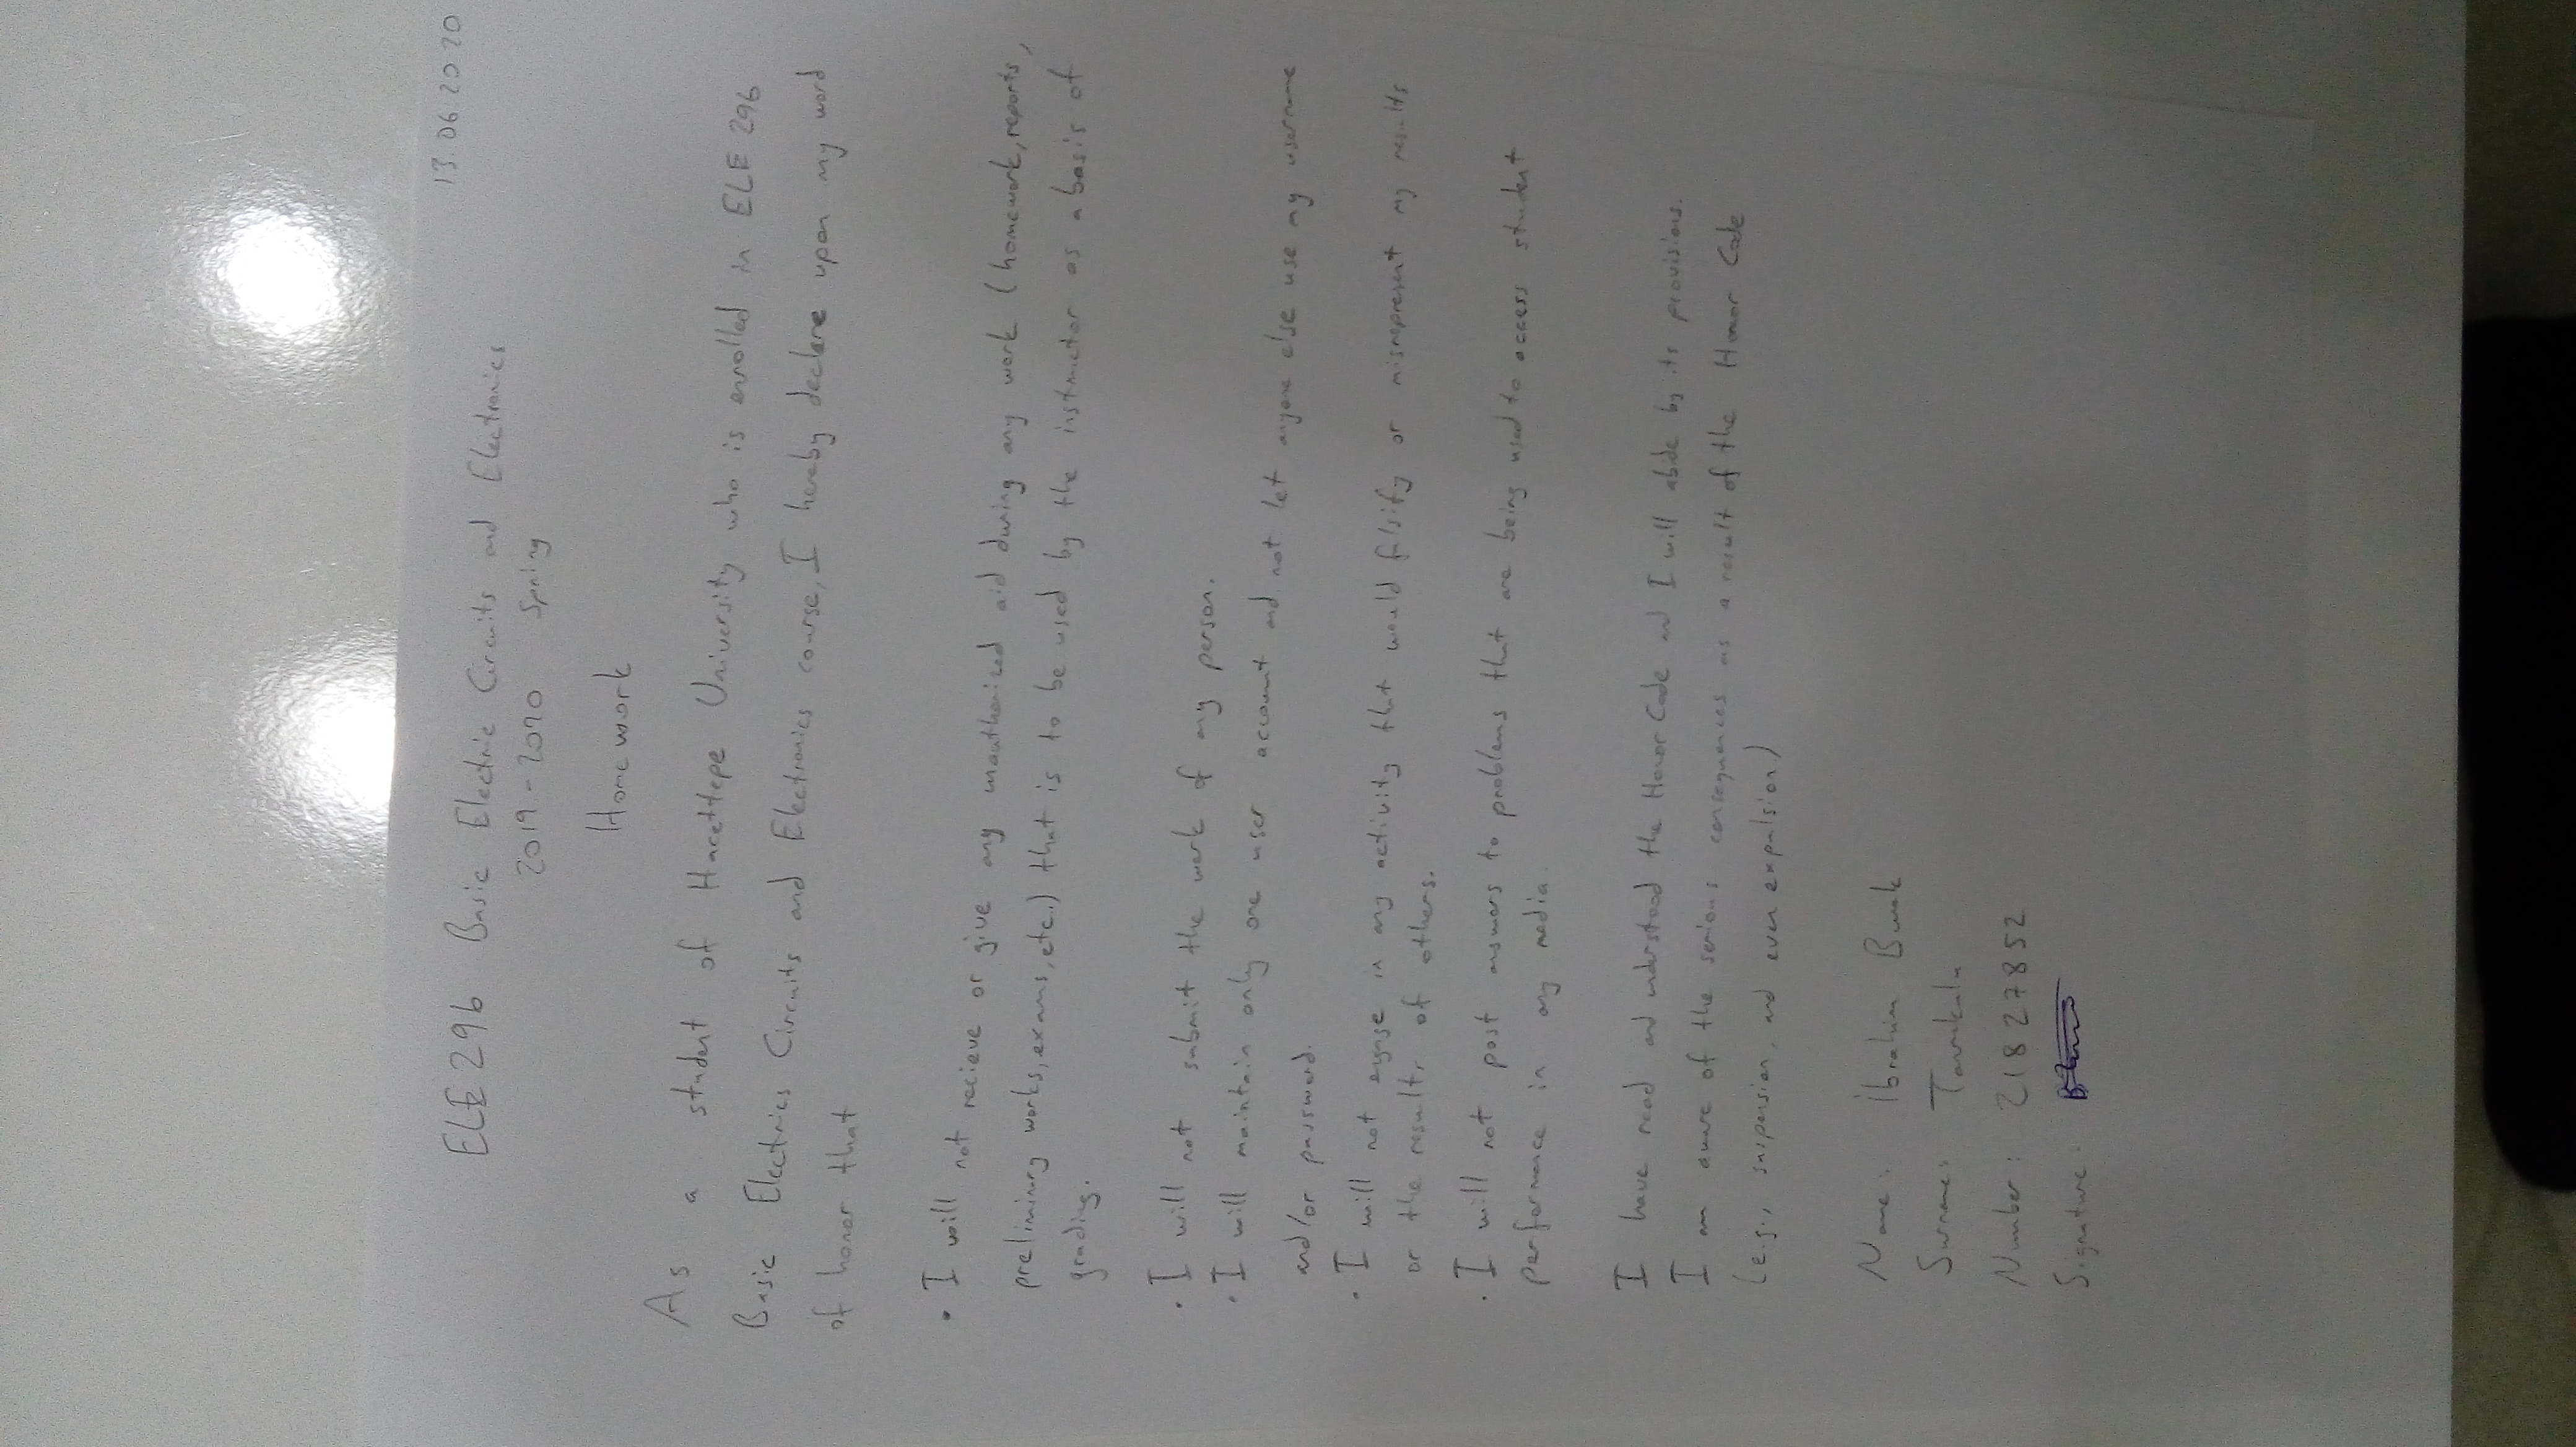 13.06.2020
ELE 296 Basic Electric Circuits and Electronics
2019-2020 Spring
Homework
As a student of Hacettepe University who is enrolled in ELE 296
Basic Electrics Circuits and Electronics course, I hereby declare upon my word
of honor that
• I will not recieve or give any unauthorized aid during any work (homework, reports,
preliminary works, exams, etc.) that is to be used by the instructor as a basis of
grading.
• I will not submit the work of any person.
• I will maintain only one user account and not let anyone else use my username
and/or password.
• I will not engage in any activity that would falsify or misrepresent my results
or the results of others.
• I will not post answers to problems that are being used to access student
performance in any media.
I have read and understood the Honor Code and I will abide by its provisions.
I am aware of the serious consequences as a result of the Honor Code
(e.g., suspension, and even expulsion)
Name: İbrahim Burak
Surname: Tanrıkulu
Number: 21827852
Signature: